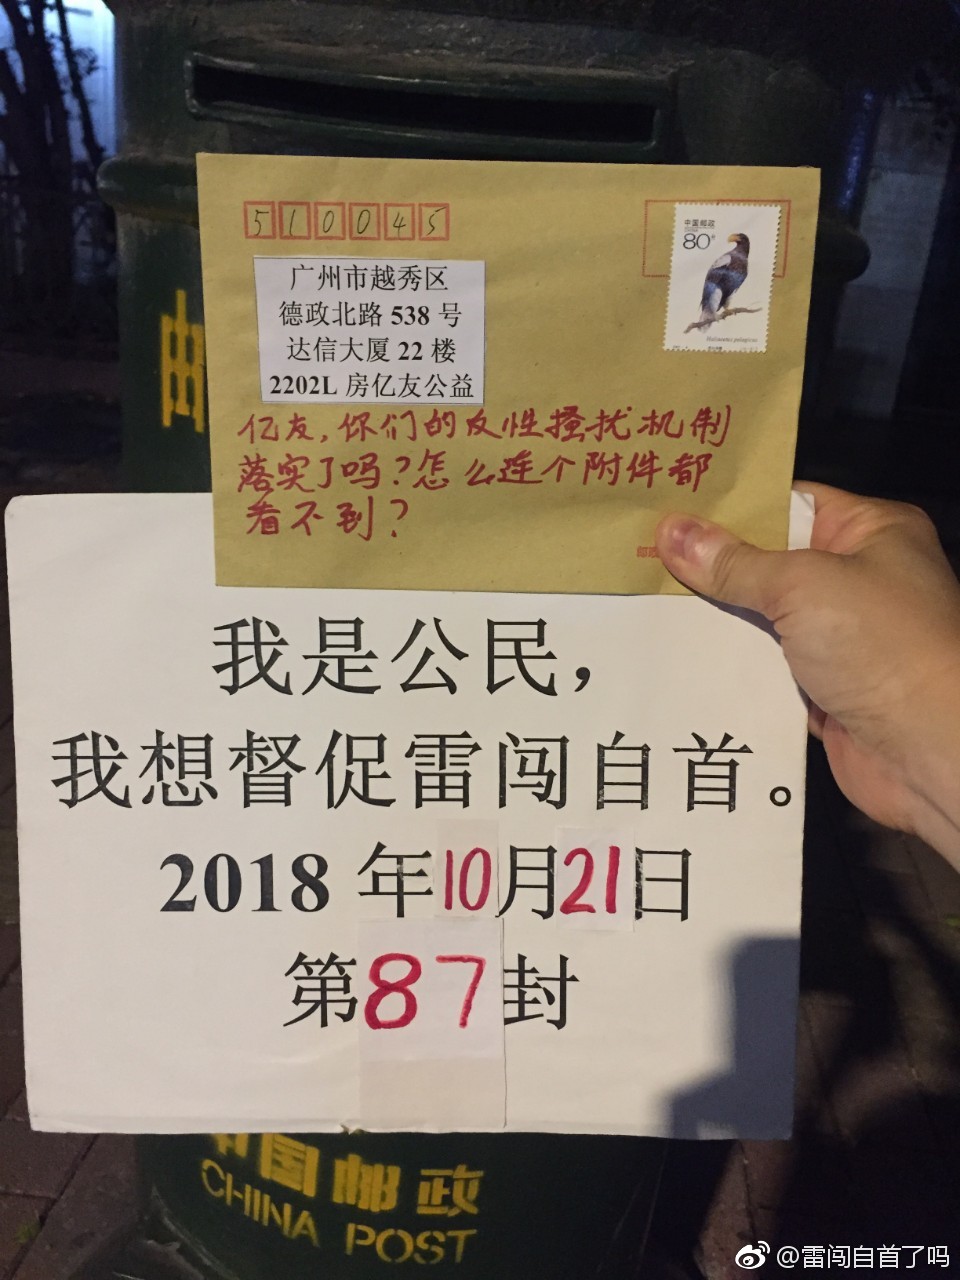 510045
中国邮政
80分
广州市越秀区
德政北路 538 号
达信大厦 22 楼
2202L 房亿友公益
亿友,你们的反性搔扰机制
落实了吗?怎么连个附件都
看不到?
我是公民,
我想督促雷闯自首。
2018 年10月21日
第87封
中国邮政
CHINA POST
@雷闯自首了吗